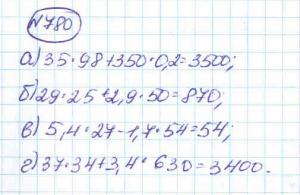 №780
а) 35·98+350·0,2=3500;
б) 29·25+2,9·50=870;
в) 5,4·27-1,7·54=54;
г) 37·34+3,4·630=3400.